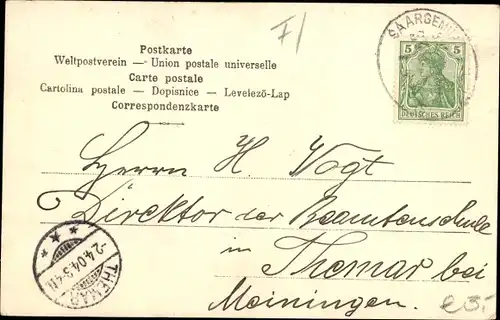 F/
SAARGEMÜ
Postkarte
Weltpostverein — Union postale universelle
Carte postale
Cartolina postale — Dopisnice — Levelező-Lap
Correspondenzkarte
5 5
DEUTSCHES REICH
Herrn H. Vogt
Direktor der Beamtenschule
in Themar bei
Meiningen.
THEMAR
-2.4.04.3-4N.
€3.-